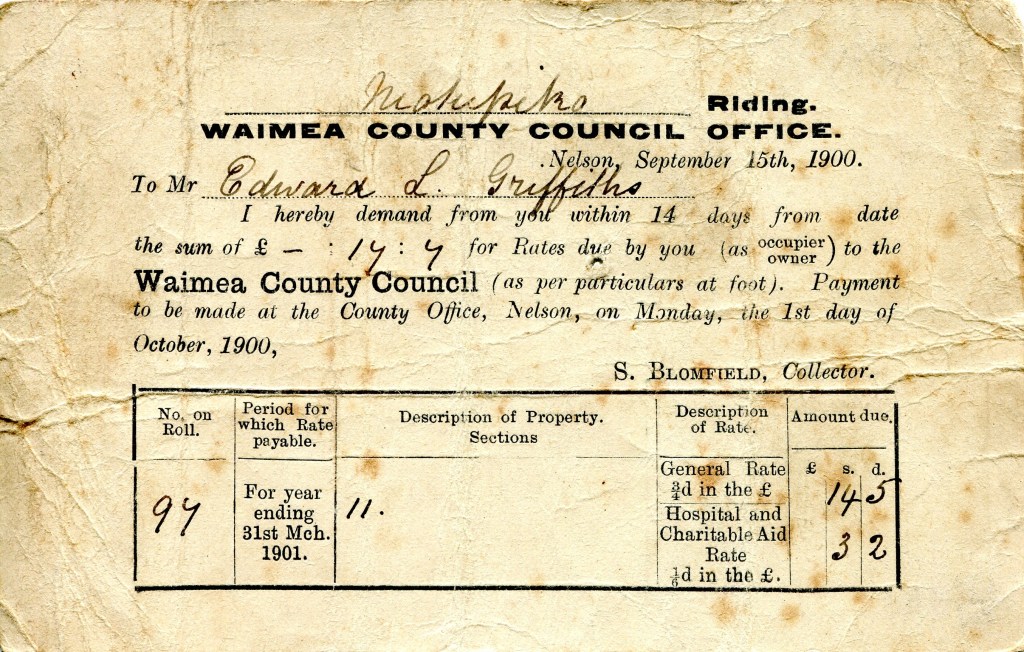 Motupiko Riding.
WAIMEA COUNTY COUNCIL OFFICE.
Nelson, September 15th, 1900.
To Mr Edward L. Griffiths
I hereby demand from you within 14 days from date
the sum of £ – : 17 : 7 for Rates due by you (as occupier owner) to the
Waimea County Council (as per particulars at foot). Payment
to be made at the County Office, Nelson, on Monday, the 1st day of
October, 1900,
S. BLOMFIELD, Collector.
No. on Roll.
Period for which Rate payable.
Description of Property. Sections
Description of Rate.
Amount due.
£ s. d.
97
For year ending 31st Mch. 1901.
11.
General Rate ¾d in the £
14 5
Hospital and Charitable Aid Rate ⅙d in the £.
3 2